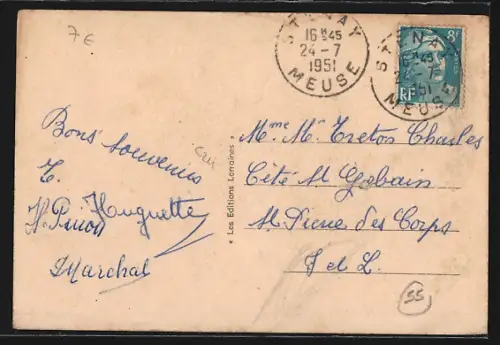 7€
STENAY
16H45
24-7
1951
MEUSE
8F
RF
STENAY
16H45
24-7
1951
MEUSE
Bons souvenirs
Huguette
Marchal
« Les Editions Lorraines »
Mme Mr Treton Charles
Cité St Gobain
St Pierre des Corps
I et L.
55